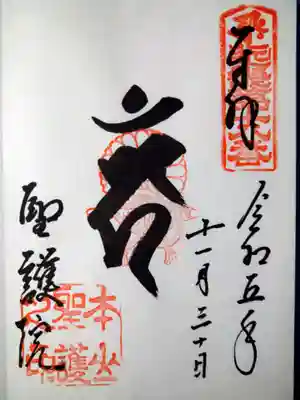 奉拝
令和五年
十一月三十日
聖護院
本山
聖護